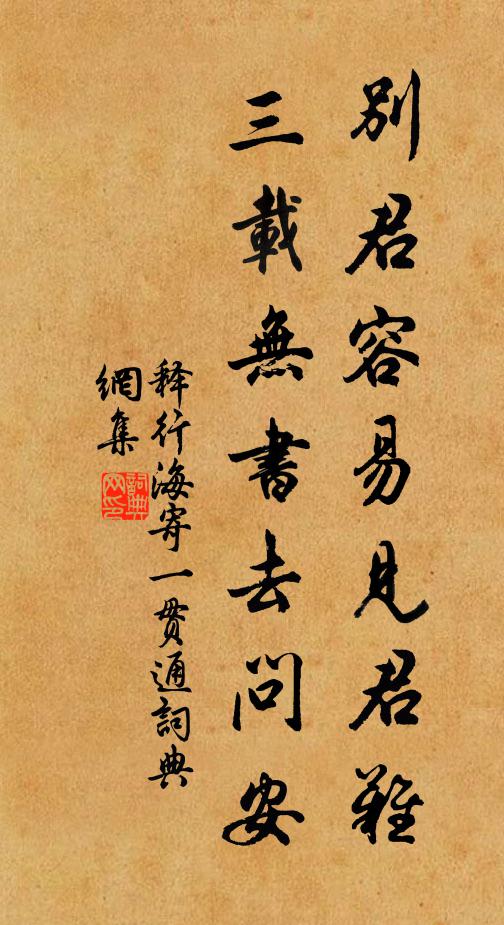 別君容易見君難
三載無書去問安
释行海寄一贯通詞典
網集
詞典
网印